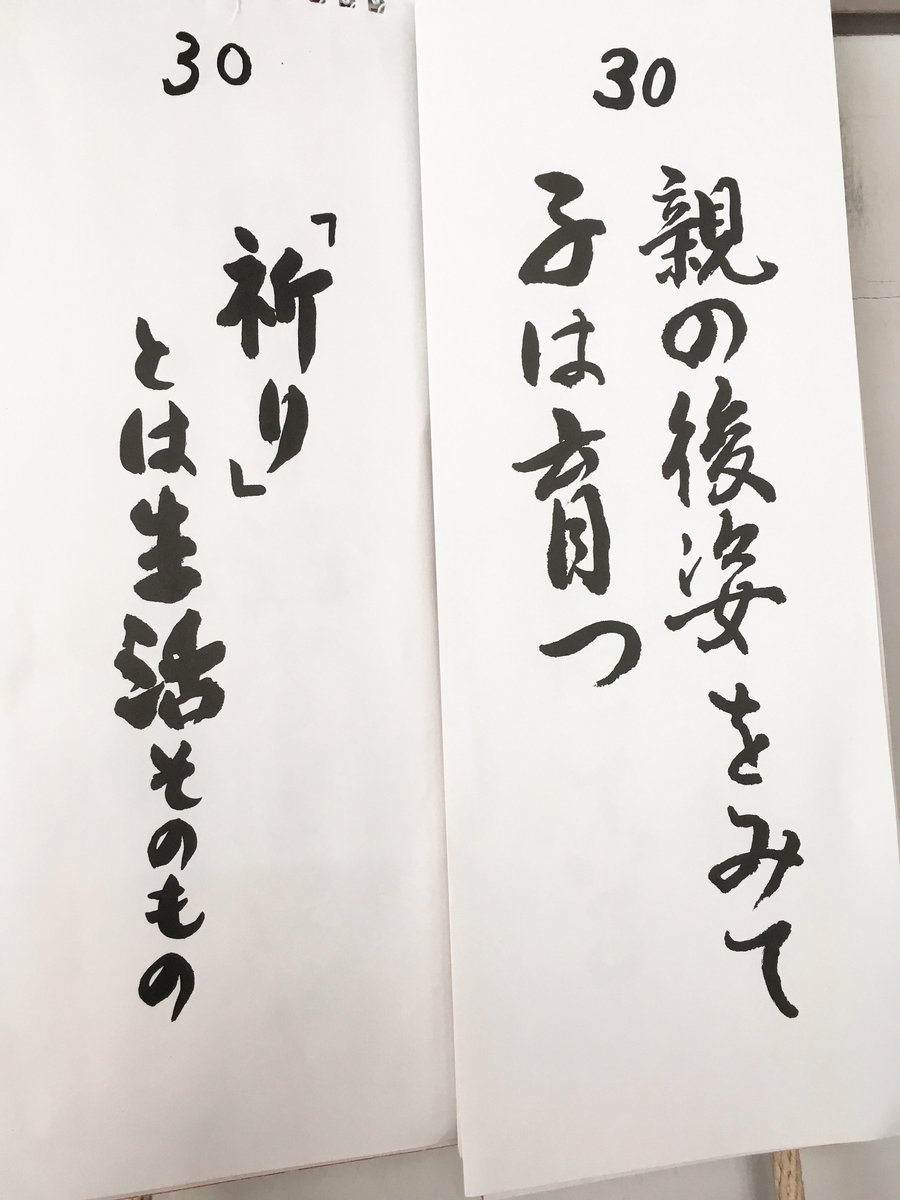 30
親の後姿をみて
子は育つ
30
「祈り」
とは生活そのもの